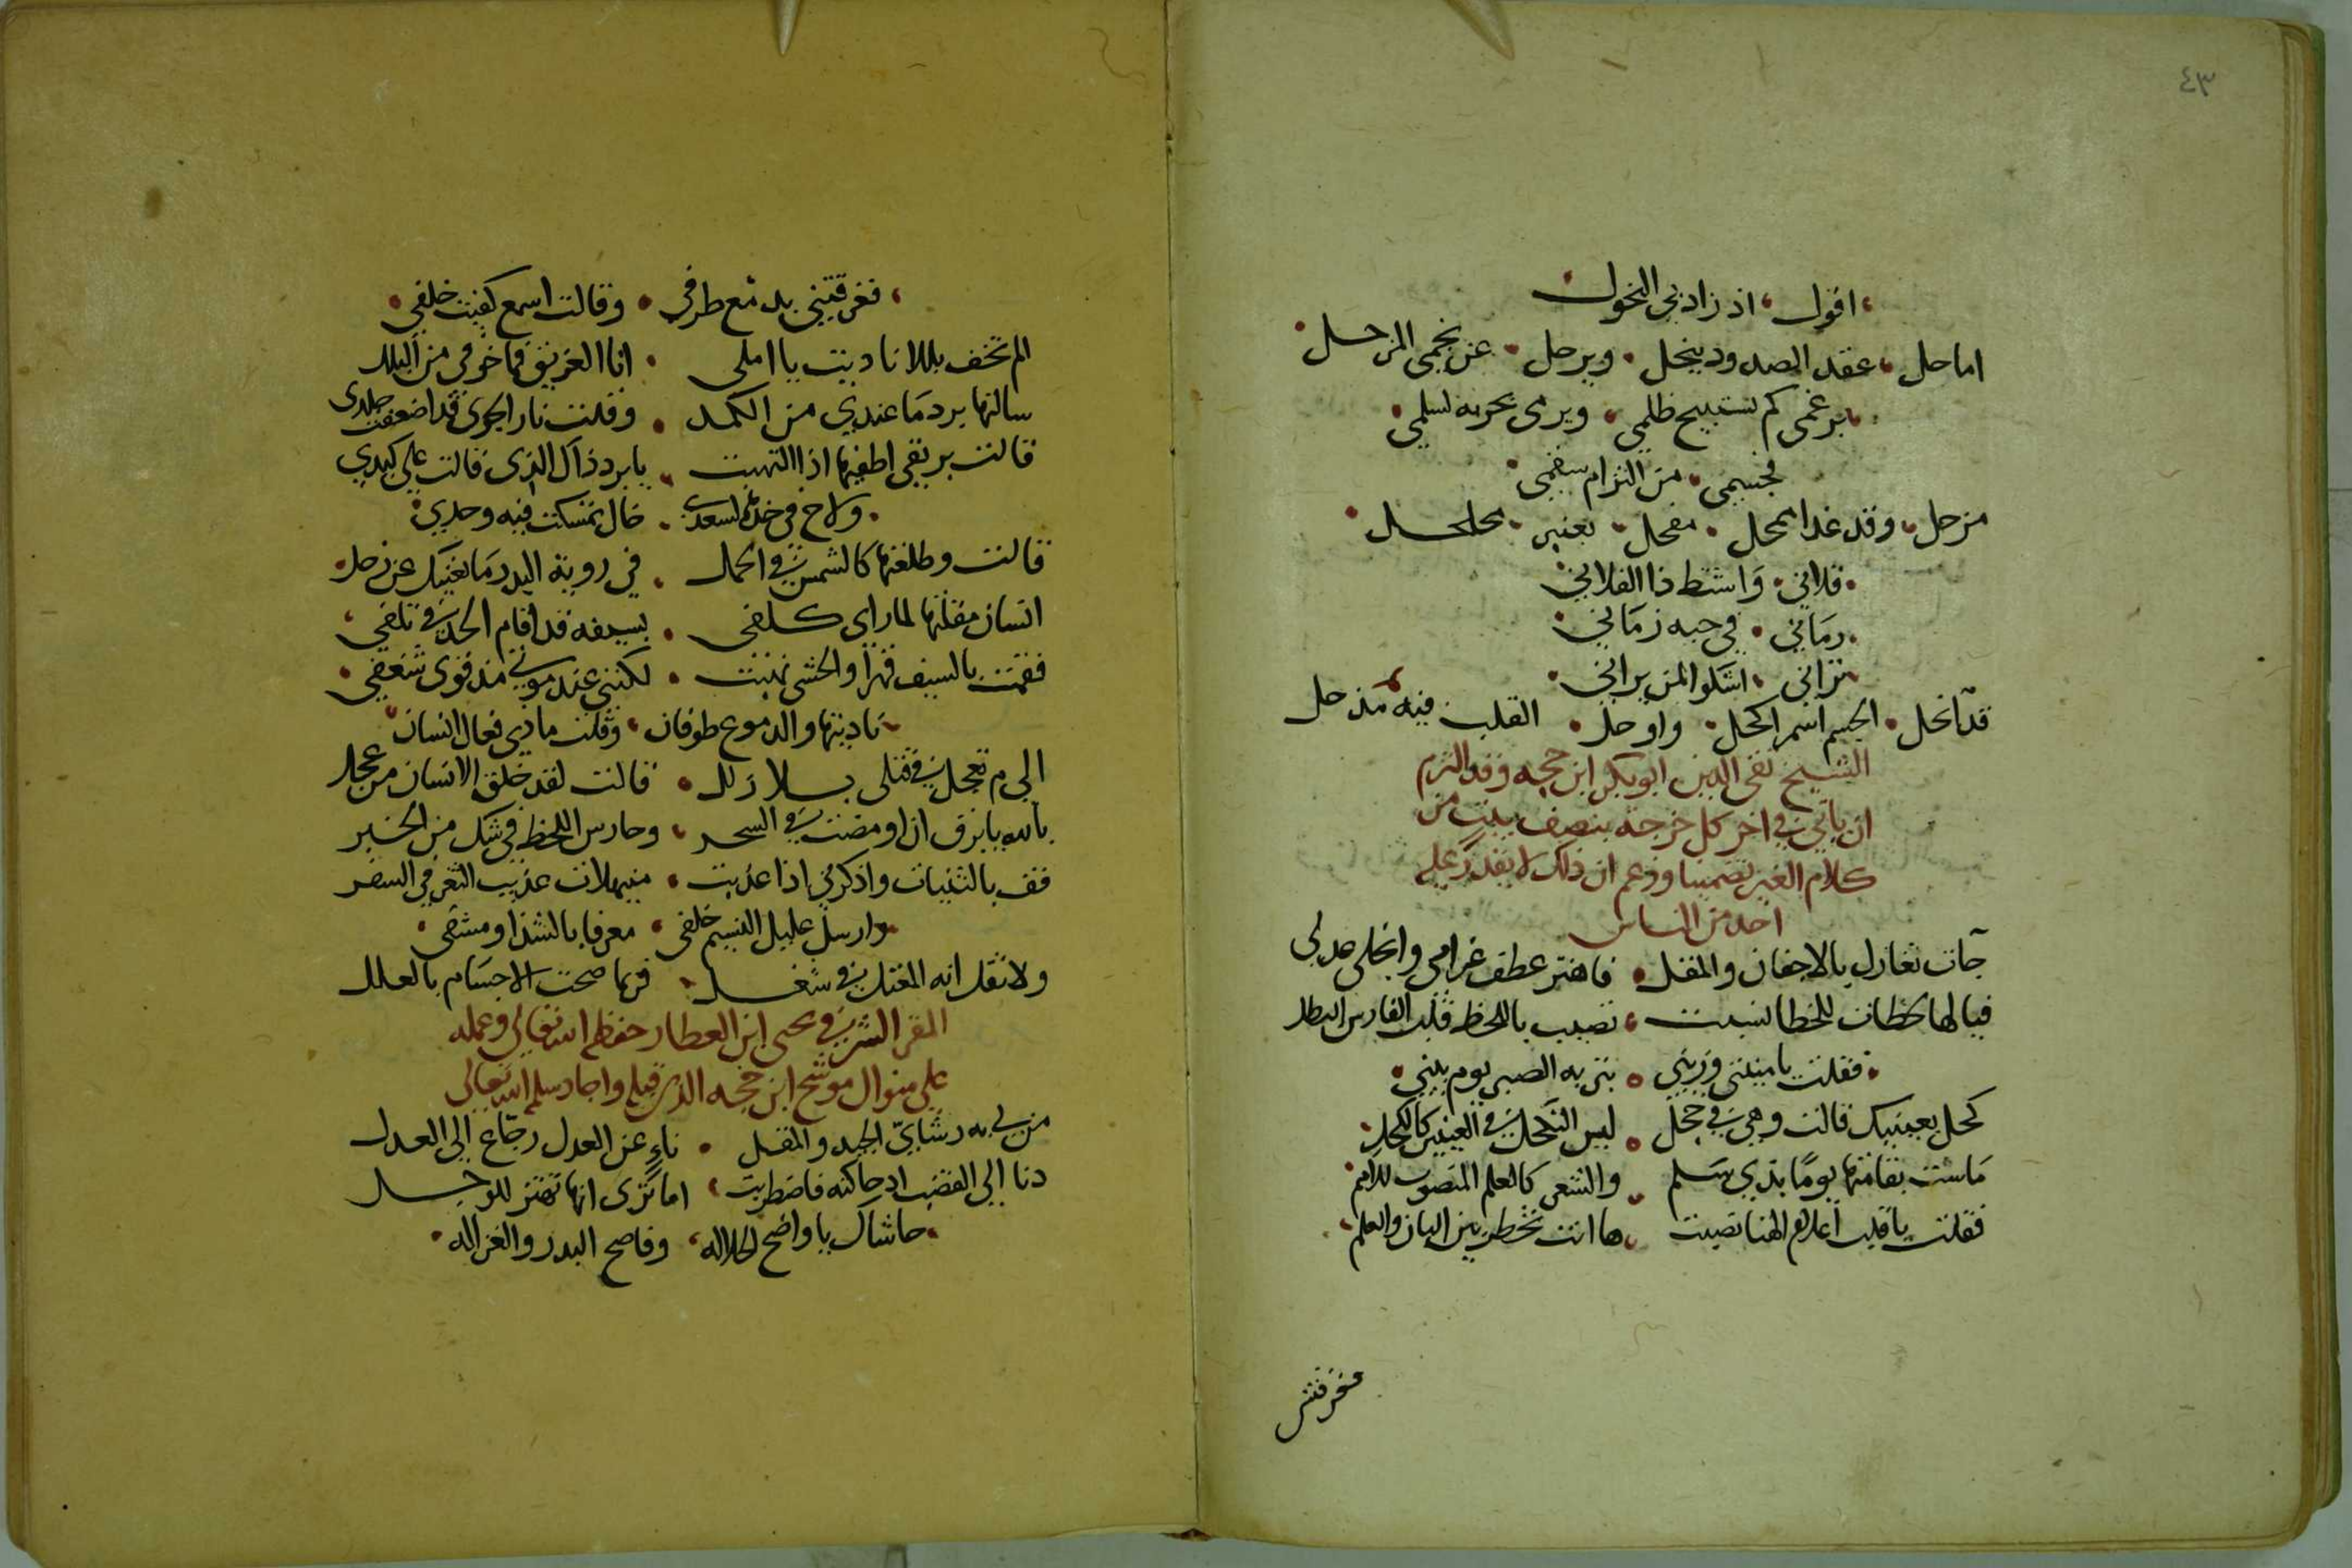 ٤٣
اقول اذ زاد بي النحول
اما حل عقد الصدود ينحل ويرحل عن نجمى المزحل
برغمى كم تستبيح ظلمي ويرمى بحربه لسلمي
لجسمى من التزام سقمى
منحل وقد غدا ممحل مقحل بعنبر محلحل
قلاني واشتط ذا الفلاني
رماني في حبه زماني
تراني اشلوا لمن يراني
قد انحل الجسم اسمر اكحل واوحل القلب فيه مذ حل
الشيخ تقى الدين ابو بكر ابن حجه وقد التزم
ان ياتي في اخر كل خرجة بنصف بيت من
كلام الغير تضمينا وزعم ان ذلك لا يقدر عليه
احد من الناس
جات تغازل بالاجفان والمقل فاهتز عطف غرامي وانجلى جدلي
فيالها لحظات للخطا نسبت تصيب باللحظ قلب الفارس البطل
فقلت يا منيتي وزيني بنربه الصبر يوم بيني
كحل بعينيك قالت وهي في خجل ليس التكحل في العينين كالكحل
ماست بقامتها يوما بذي سلم والشعر كالعلم المنصوب للامم
فقلت يا قلب اعلام الهنا نصبت ها انت تخطر بين البان والعلم
فغرقتني بدمع طرفي وقالت اسمع كفيت خلفي
الم تخف بللا ناديت يا املى انا الغريق فما خوفي من البلل
سالتها برد ما عندي من الكمد وقلت نار الجوى قد اضعفت جلدى
قالت بريقى اطفيها اذا التهبت يا برد ذاك الذى قالت على كبدي
ولاح في خدها لسعدى خال تمسكت فيه وحدي
قالت وطلعتها كالشمس في الحمل في روية البدر ما يغنيك عن زحل
انسان مقلتها لما راي كلفى بسيفه قد اقام الحد في تلفي
فقمت بالسيف قهرا والحشى نهبت لكنني عند موتي مذ قوى شغفي
ناديتها والدموع طوفان وقلت ما ذي فعال انسان
الى م تعجل في قتلى بلا زلل قالت لقد خلق الانسان من عجل
بالله يا برق ان اومضت في السحر وحارس اللحظ في شك من الخبر
فقف بالثنيات واذكرني اذا عذبت منيهلات عذيب الثغر في السفر
وارسل عليل النسيم خلفى معرفا بالشذا ومشفى
ولا تقل انه المعتل في شغل فربما صحت الاجسام بالعلل
المقر الشرفي يحيى ابن العطار حفظه الله تعالى وعمله
على منوال موشح ابن حجه الذي قبله واجاد سلمه الله تعالى
من لي به رشائي الجيد والمقل ناء عن العدل رجاع الى العدل
دنا الى القضب اذ حاكته فاضطربت اما ترى انها تهتز للوجل
حاشاك يا واضح الجلاله وفاضح البدر والغزاله